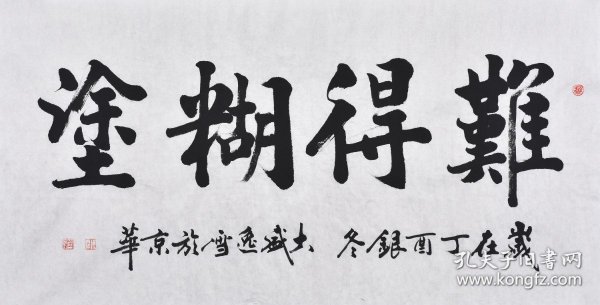 難得糊塗
歲在丁酉銀冬 大威逸雪於京華
孔夫子旧书网
www.kongfz.com